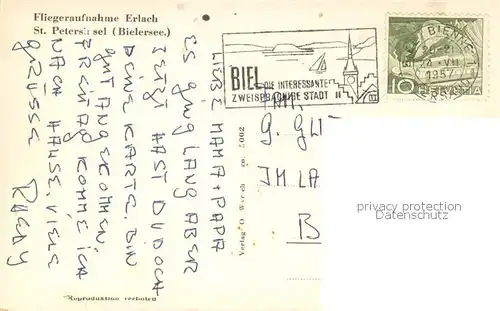 Fliegeraufnahme Erlach
St. Petersinsel (Bielersee.)
LIEBE MAMA + PAPA
ES GING LANG ABER
JETZT HAST DU DOCH
DEINE KARTE. BIN
GUT ANGEKOMMEN,
FREITAG KOMME ICH
NACH HAUSE. VIELE
GRÜSSE RUEDY
Reproduktion verboten
Verlag O. Wyrsch 5062
BIEL DIE INTERESSANTE
ZWEISPRACHIGE STADT
BIENNE 1
1957
10 HELVETIA
FAM
G. GL
IM LA
B
privacy protection
Datenschutz